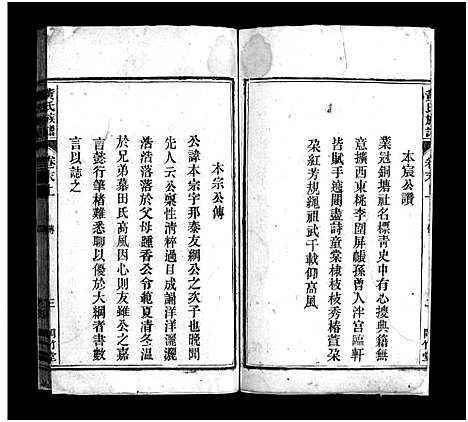 本宸公讚
業冠銅塘社名標青史中有心搜典籍無
意擴西東桃李圍屏帳孫曾入泮宮臨軒
皆賦手遶閣盡詩童棠棣枝枝秀椿萱朶
朶紅芳規繩祖武千載仰高風
黃氏族譜
卷末上
傳
本宗公傳
公諱本宗字邦泰友綱公之次子也晚聞
先人云公稟性清粹過目成誦洋洋灑灑
浩浩落落於父母踵香公令範夏清冬溫
於兄弟慕田氏高風因心則友雖公之嘉
言懿行筆楮難悉聊以優於大綱者書數
言以誌之